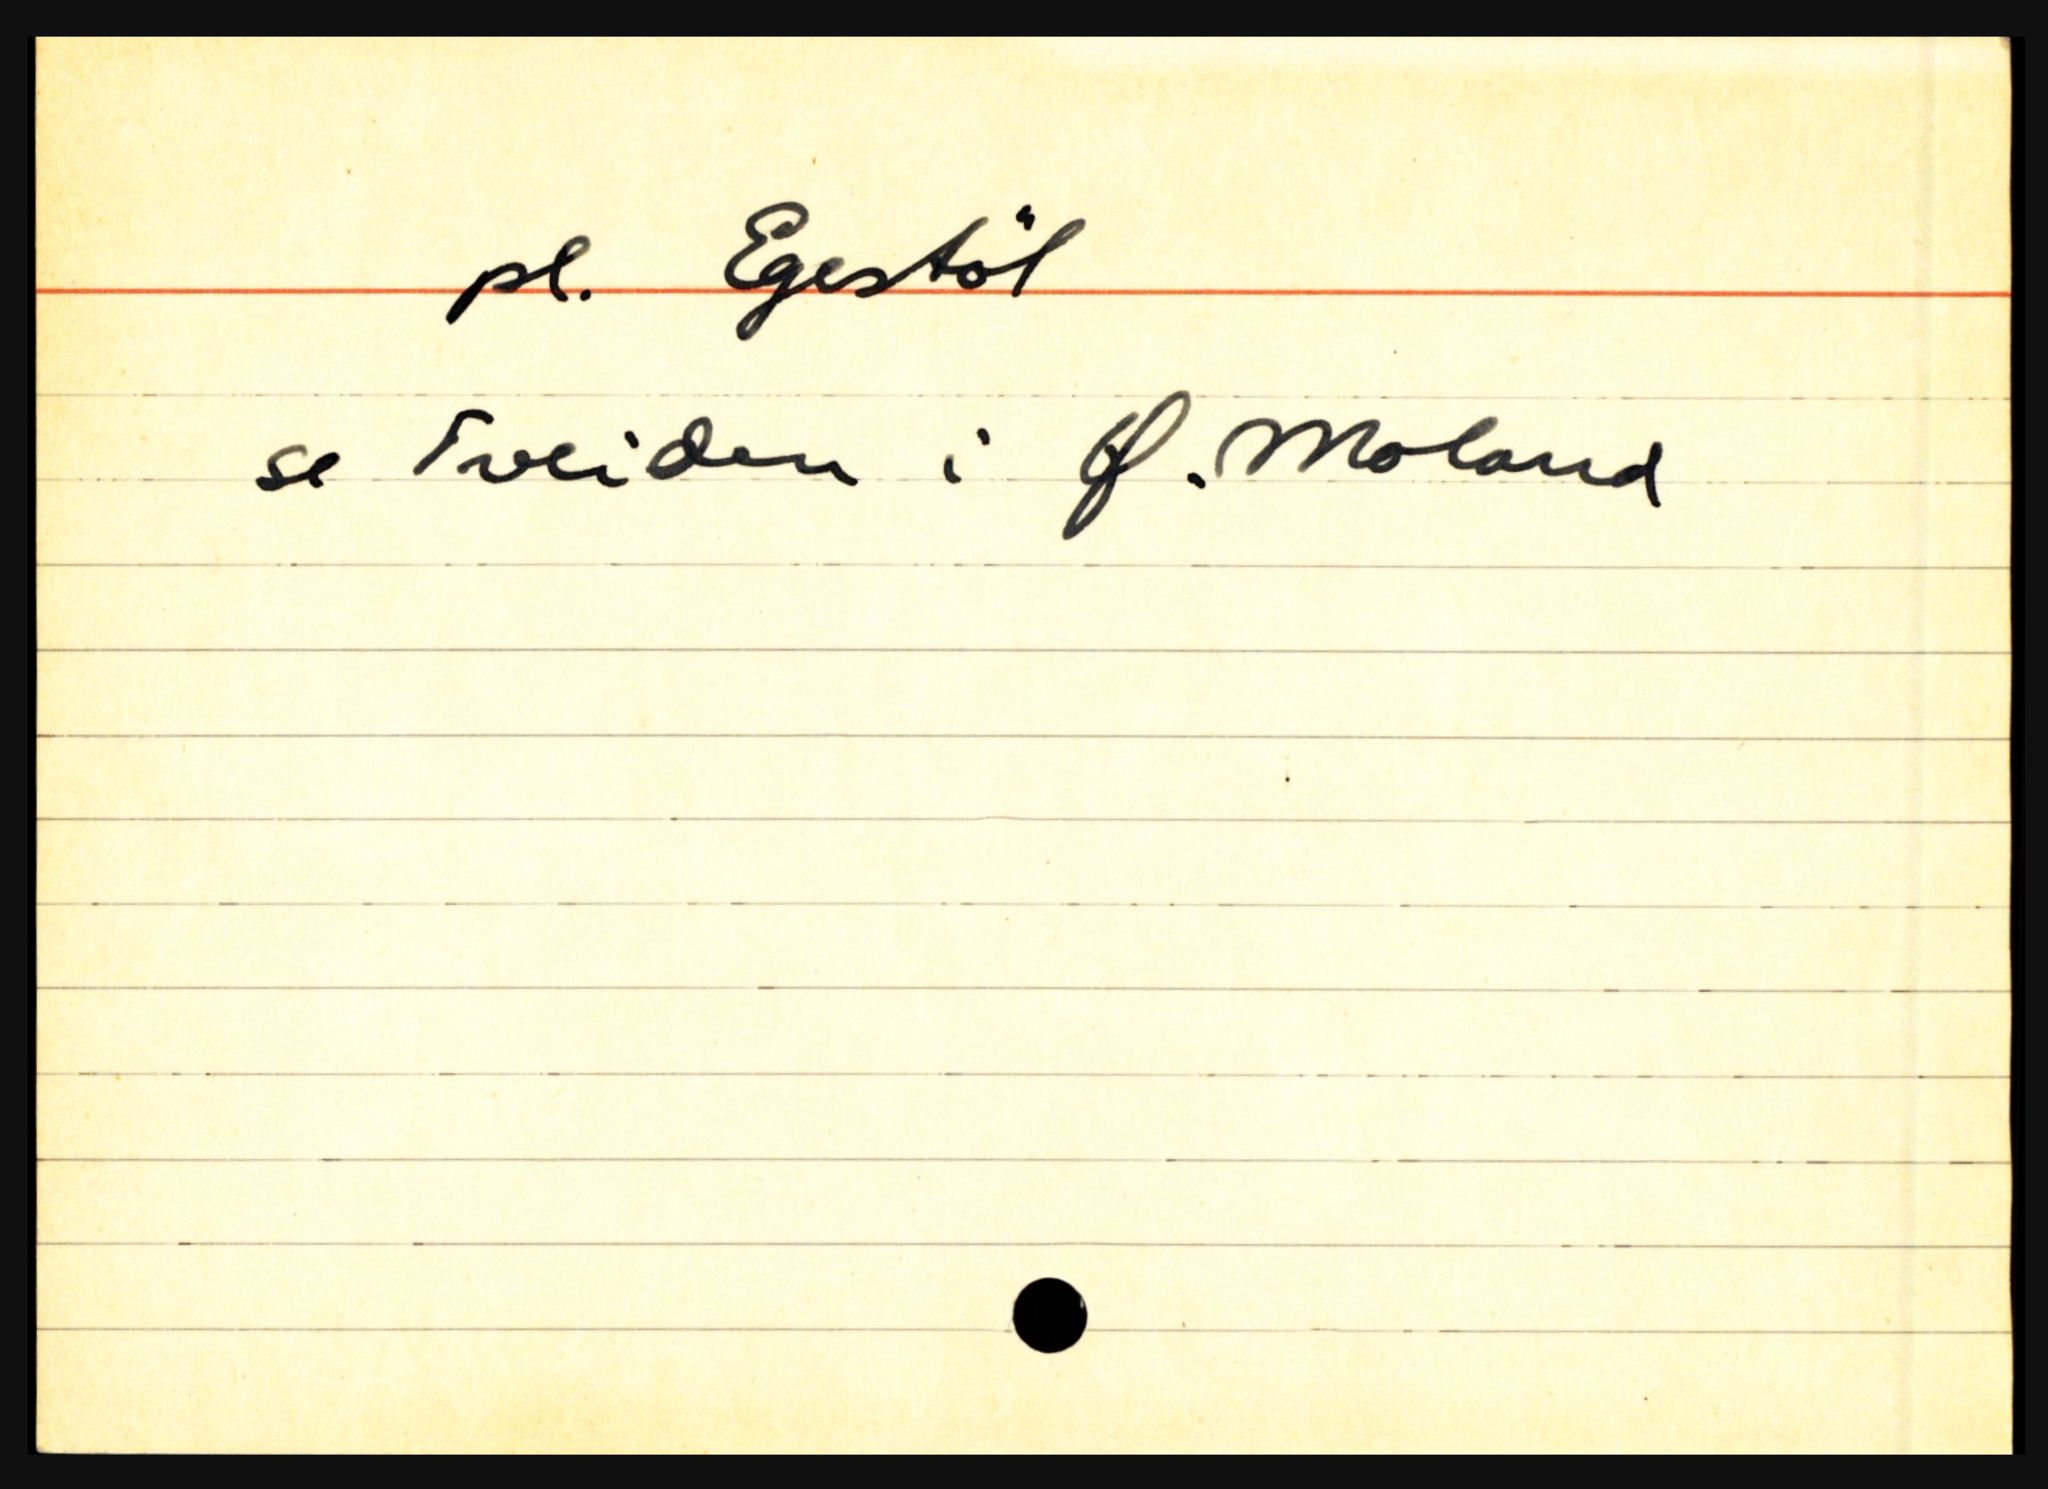 pl. Egestöl
se Tveiden i Ø. Moland